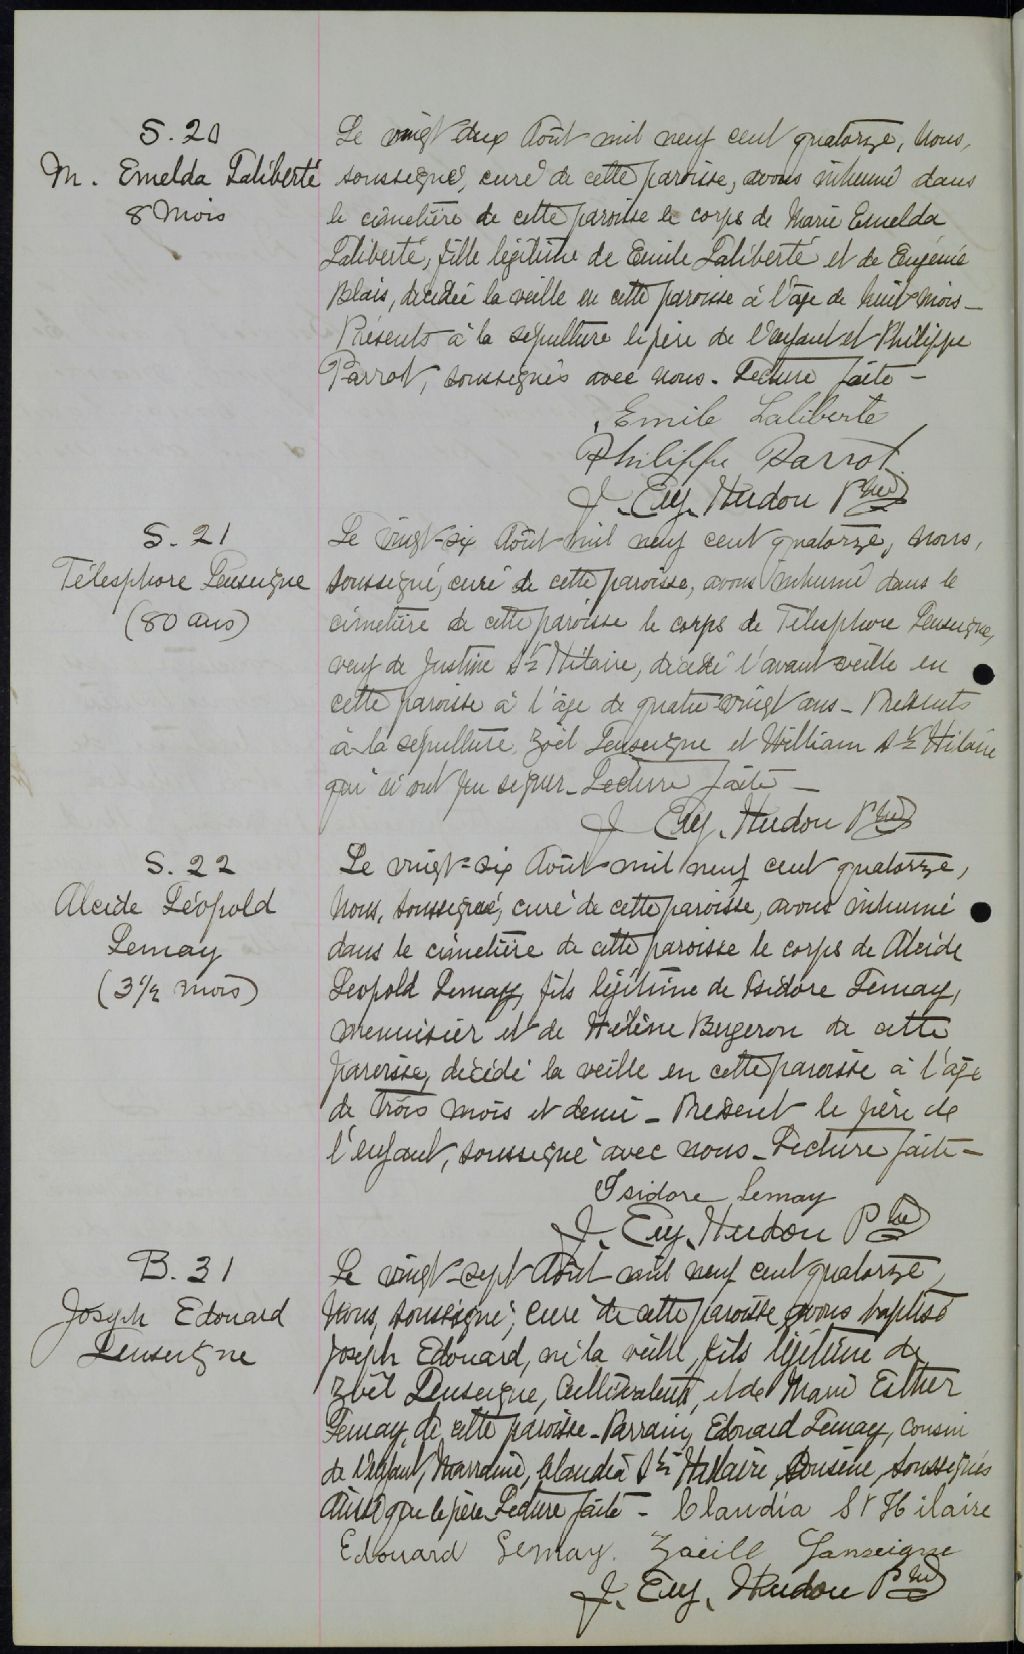 S. 20
M. Emelda Laliberté
8 Mois
Le vingt deux Août mil neuf cent quatorze, Nous,
soussigné, curé de cette paroisse, avons inhumé dans
le cimetière de cette paroisse le corps de Marie Emelda
Laliberté, fille légitime de Emile Laliberté et de Eugénie
Blais, décédée la veille en cette paroisse à l'âge de huit mois _
Présents à la sépulture le père de l'enfant et Philippe
Parrot, soussignés avec nous. Lecture faite _
Emile Laliberte
Philippe Parrot
J. Eug. Hudon Ptre
S. 21
Télesphore Lenseigne
(80 ans)
Le vingt-six Août mil neuf cent quatorze, nous,
soussigné, curé de cette paroisse, avons inhumé dans le
cimetière de cette paroisse le corps de Télesphore Lenseigne,
veuf de Justine St Hilaire, décédé l'avant veille en
cette paroisse à l'âge de quatre-vingt ans _ Présents
à la sépulture, Zoël Lenseigne et William St Hilaire
qui n'ont pu signer _ Lecture faite _
J. Eug. Hudon Ptre
S. 22
Alcide Léopold
Lemay
(3 1/2 mois)
Le vingt-six Août mil neuf cent quatorze,
Nous, soussigné, curé de cette paroisse, avons inhumé
dans le cimetière de cette paroisse le corps de Alcide
Leopold Lemay, fils légitime de Isidore Lemay,
menuisier et de Hélène Bergeron de cette
paroisse, décédé la veille en cette paroisse à l'âge
de trois mois et demi _ Présent le père de
l'enfant, soussigné avec nous _ Lecture faite _
Isidore Lemay
J. Eug. Hudon Ptre
B. 31
Joseph Edouard
Lenseigne
Le vingt-sept Août mil neuf cent quatorze,
Nous, soussigné, curé de cette paroisse avons baptisé
Joseph Edouard, né la veille, fils légitime de
Zoël Lenseigne, Cultivateur, et de Marie Esther
Lemay, de cette paroisse _ Parrain, Edouard Lemay, cousin
de l'enfant, Marraine, Claudia St Hilaire, cousine, soussignés
ainsi que le père. Lecture faite _ Claudia St Hilaire
Edouard Lemay. Zoëll Lanseigne
J. Eug. Hudon Ptre